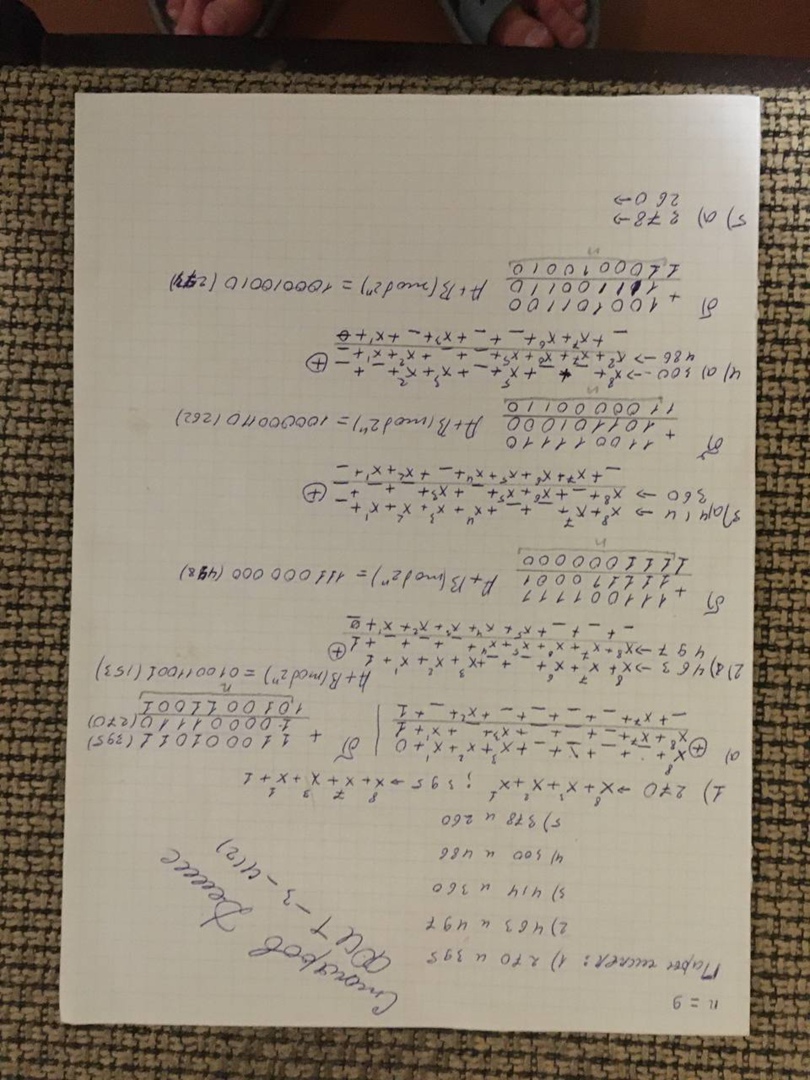 n = 9
Пары чисел: 1) 270 и 395
2) 463 и 497
3) 414 и 360
4) 300 и 486
5) 378 и 260
Столяров Денис
ФИТ-3-4(2)
1) 270 → x⁸ + x³ + x² + x¹ ; 395 → x⁸ + x⁷ + x³ + x¹ + 1
а) x⁸ + _ + _ + _ + _ + x³ + x² + x¹ + 0
⊕ x⁸ + x⁷ + _ + _ + _ + x³ + _ + x¹ + 1
_ + x⁷ + _ + _ + _ + _ + x² + _ + 1
б) + 110001011 (395)
100001110 (270)
1010011001
n
A+B(mod2ⁿ) = 010011001 (153)
2) а) 463 → x⁸ + x⁷ + x⁶ + _ + _ + x³ + x² + x¹ + 1
497 → x⁸ + x⁷ + x⁶ + x⁵ + x⁴ + _ + _ + _ + 1 ⊕
_ + _ + _ + x⁵ + x⁴ + x³ + x² + x¹ + 0
б) + 111001111
111110001
1111000000
n
A+B(mod2ⁿ) = 111000000 (448)
3) а) 414 → x⁸ + x⁷ + _ + _ + x⁴ + x³ + x² + x¹ + _
360 → x⁸ + _ + x⁶ + x⁵ + _ + x³ + _ + _ + _ ⊕
_ + x⁷ + x⁶ + x⁵ + x⁴ + _ + x² + x¹ + _
б) + 110011110
101101000
1100000110
n
A+B(mod2ⁿ) = 100000110 (262)
4) а) 300 → x⁸ + _ + _ + x⁵ + _ + x³ + x² + _ + _
486 → x⁸ + x⁷ + x⁶ + x⁵ + _ + _ + x² + x¹ + _ ⊕
_ + x⁷ + x⁶ + _ + _ + x³ + _ + x¹ + 0
б) + 100101100
111100110
1100010010
n
A+B(mod2ⁿ) = 100010010 (274)
5) а) 378 →
260 →